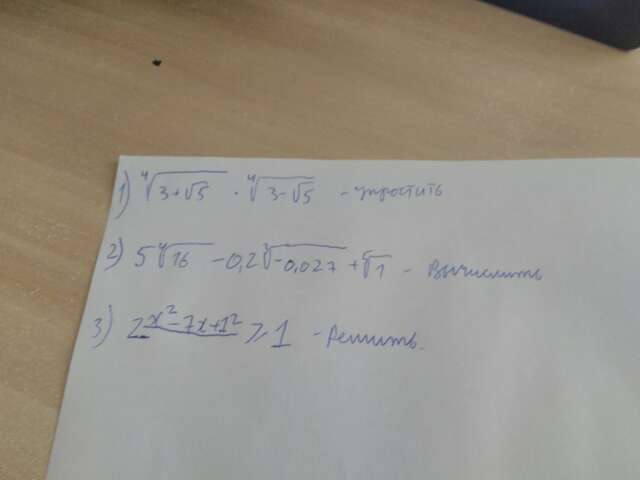 1) ⁴√(3+√5) · ⁴√(3-√5) - упростить
2) 5⁴√16 - 0,2³√(-0,027) + ⁵√1 - Вычислить
3) 2^(x²-7x+1²) ≥ 1 - Решить.